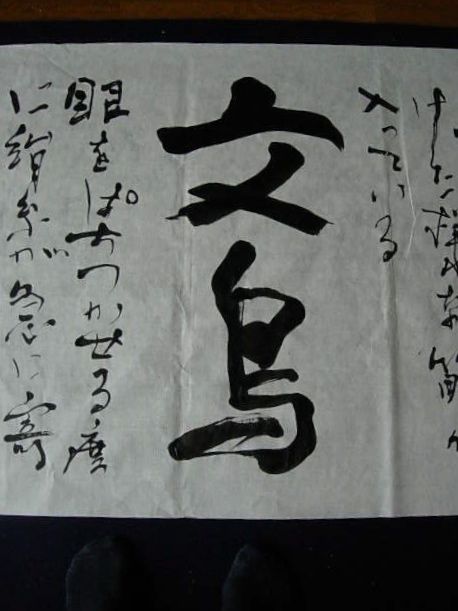 けた様な筋が
入っている
文鳥
眼をぱちつかせる度
に絹糸が急に寄